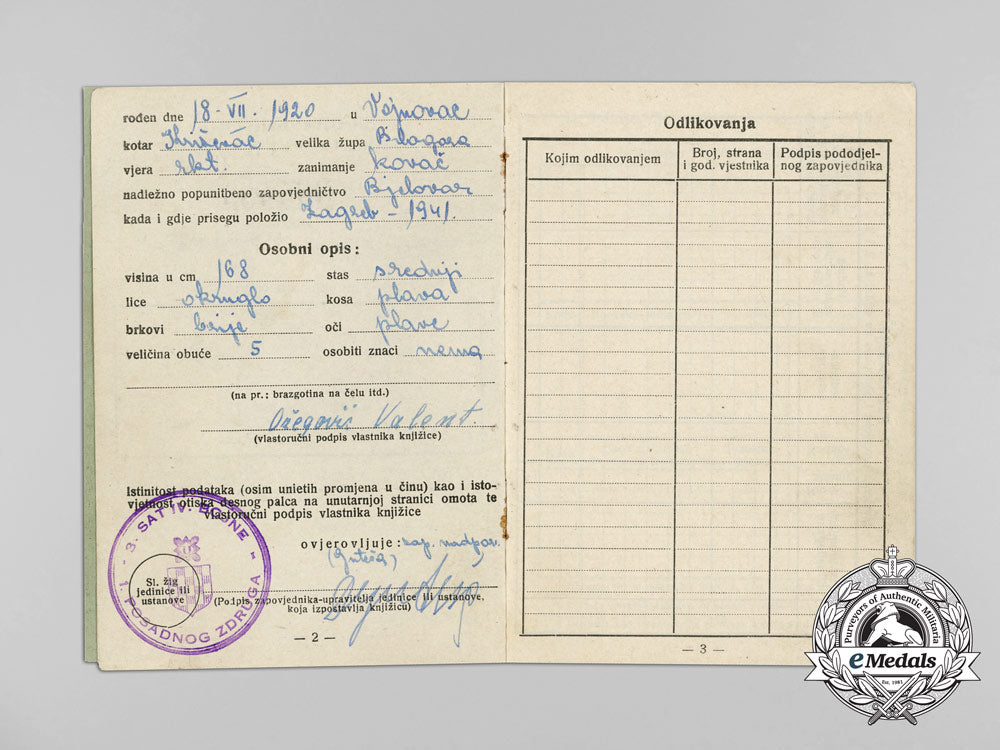 rođen dne 18-VII. 1920 u Vojnovac
kotar Križevác velika župa Bilogora
vjera rkt. zanimanje kovač
nadležno popunitbeno zapovjedničtvo Bjelovar
kada i gdje prisegu položio Zagreb - 1941.
Osobni opis:
visina u cm 168 stas srednji
lice okruglo kosa plava
brkovi brije oči plave
veličina obuće 5 osobiti znaci nema
(na pr.: brazgotina na čelu itd.)
Ožegović Valent.
(vlastoručni podpis vlastnika knjižice)
Istinitost podataka (osim unietih promjena u činu) kao i isto-
vjetnost otiska desnog palca na unutarnjoj stranici omota te
vlastoručni podpis vlastnika knjižice
ovjerovljuje: zap. nadpor.
Sl. žig
jedinice ili
ustanove
3. SAT IV. BOJNE
1. POSADNOG ZDRUGA
(Podpis zapovjednika-upravitelja jedinice ili ustanove,
koja izpostavlja knjižicu)
— 2 —
Odlikovanja
Kojim odlikovanjem
Broj, strana
i god. vjestnika
Podpis pododjel-
nog zapovjednika
— 3 —
Purveyors of Authentic Militaria
eMedals
Est. 1981